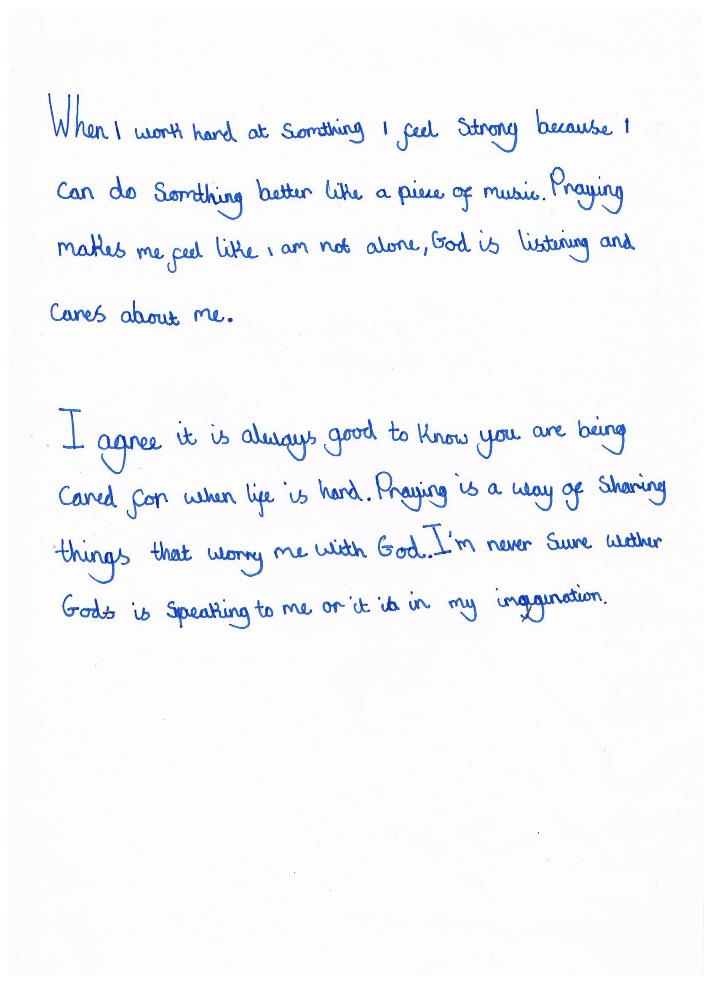 When I work hard at somthing I feel Strong because I
can do Somthing better like a piece of music. Praying
makes me feel like i am not alone, God is listening and
cares about me.
I agree it is always good to know you are being
cared for when life is hard. Praying is a way of sharing
things that worry me with God. I'm never sure wether
Gods is speaking to me or it is in my imagination.